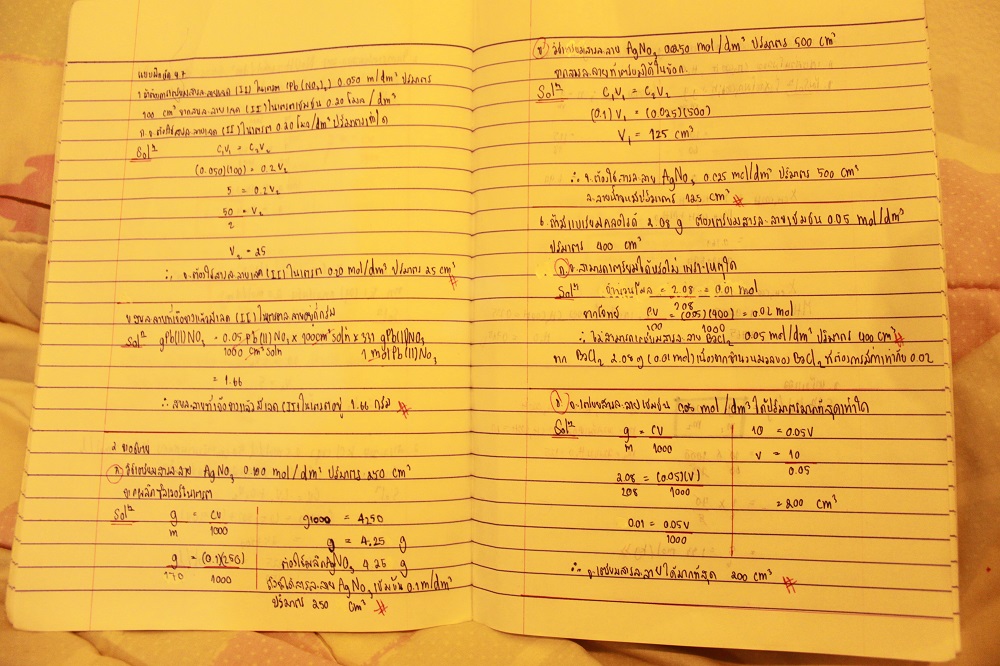 แบบฝึกหัด 4.7
1. ถ้าต้องการเตรียมสารละลายเลด (II) ไนเตรต (Pb(NO3)2) 0.050 m/dm³ ปริมาตร
100 cm³ จากสารละลายเลด (II) ไนเตรตเข้มข้น 0.20 โมล/dm³
ก. จะต้องใช้สารละลายเลด (II) ไนเตรต 0.20 โมล/dm³ ปริมาตรเท่าใด
Solⁿ C1V1 = C2V2
(0.050)(100) = 0.2V2
5 = 0.2V2
50/2 = V2
V2 = 25
∴ จะต้องใช้สารละลายเลด (II) ไนเตรต 0.20 mol/dm³ ปริมาตร 25 cm³ #
ข. สารละลายที่เจือจางแล้วมีเลด (II) ไนเตรตละลายอยู่กี่กรัม
Solⁿ gPb(II)NO3 = 0.05 Pb(II)NO3 / 1000 cm³ soln x 100cm³ soln x 331 gPb(II)NO3 / 1 mol Pb(II)NO3
= 1.66
∴ สารละลายที่เจือจางแล้วมีเลด (II) ไนเตรตอยู่ 1.66 กรัม #
2. จงอธิบาย
ก วิธีเตรียมสารละลาย AgNO3 0.100 mol/dm³ ปริมาตร 250 cm³
จากผลึกซิลเวอร์ไนเตรต
Solⁿ g/m = CV/1000
g/170 = (0.1)(250)/1000
g1000 = 4250
g = 4.25 g
ต้องใช้ผลึก AgNO3 4.25 g
จึงจะได้สารละลาย AgNO3 เข้มข้น 0.1 m/dm³
ปริมาตร 250 cm³ #
ข วิธีเตรียมสารละลาย AgNO3 0.0250 mol/dm³ ปริมาตร 500 cm³
จากสารละลายที่เตรียมได้ในข้อก.
Solⁿ C1V1 = C2V2
(0.1)V1 = (0.025)(500)
V1 = 125 cm³
∴ จะต้องใช้สารละลาย AgNO3 0.025 mol/dm³ ปริมาตร 500 cm³
ปริมาตร 125 cm³ #
6. ถ้ามีแบเรียมคลอไรด์ 2.08 g ต้องเตรียมสารละลายเข้มข้น 0.05 mol/dm³
ปริมาตร 400 cm³
ก จะสามารถเตรียมได้หรือไม่ เพราะเหตุใด
Solⁿ จำนวนโมล = 2.08/208 = 0.01 mol
จากโจทย์ CV/100 = (0.05)(400)/1000 = 0.02 mol
∴ ไม่สามารถเตรียมสารละลาย BaCl2 0.05 mol/dm³ ปริมาตร 400 cm³ #
จาก BaCl2 2.08 g (0.01 mol) เนื่องจากจำนวนมวลของ BaCl2 ที่ต้องการมีค่าเท่ากับ 0.02
จะเตรียมสารละลายเข้มข้น 0.05 mol/dm³ ได้ปริมาตรมากที่สุดเท่าใด
Solⁿ g/m = CV/1000
2.08/208 = (0.05)(V)/1000
0.01 = 0.05V/1000
10 = 0.05V
V = 10/0.05
= 200 cm³
∴ จะเตรียมสารละลายได้มากที่สุด 200 cm³ #